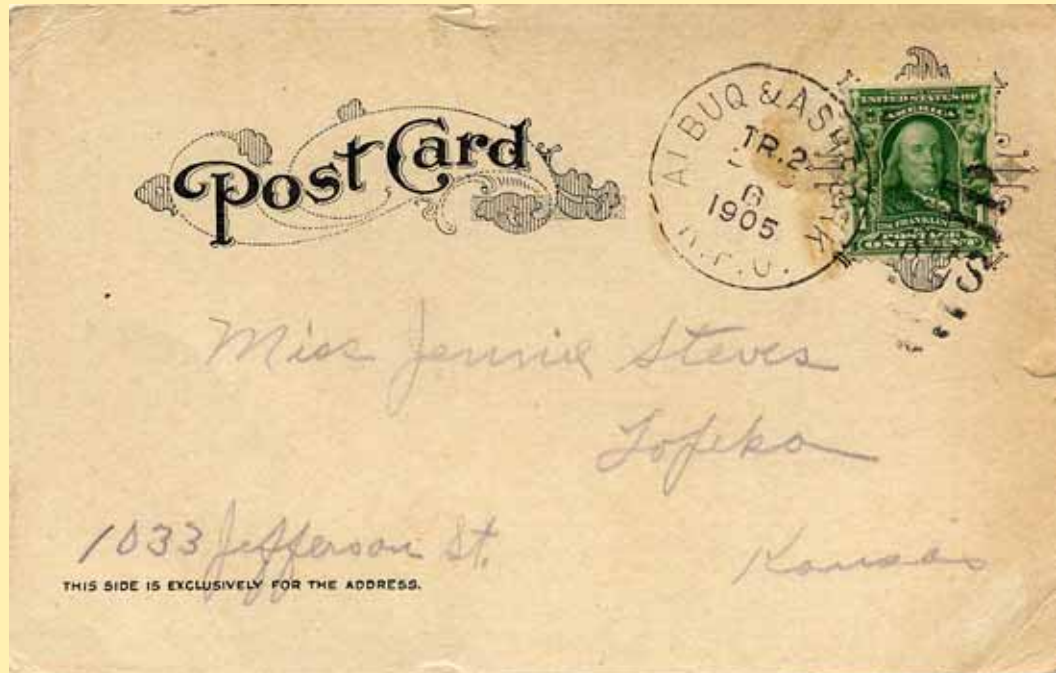 Post Card
ALBUQ & ASH FORK
TR. 2
6
1905
R.P.O.
UNITED STATES OF
AMERICA
FRANKLIN
POSTAGE
ONE CENT
Miss Jennie Steves
Topeka
1033 Jefferson St.
Kansas
THIS SIDE IS EXCLUSIVELY FOR THE ADDRESS.